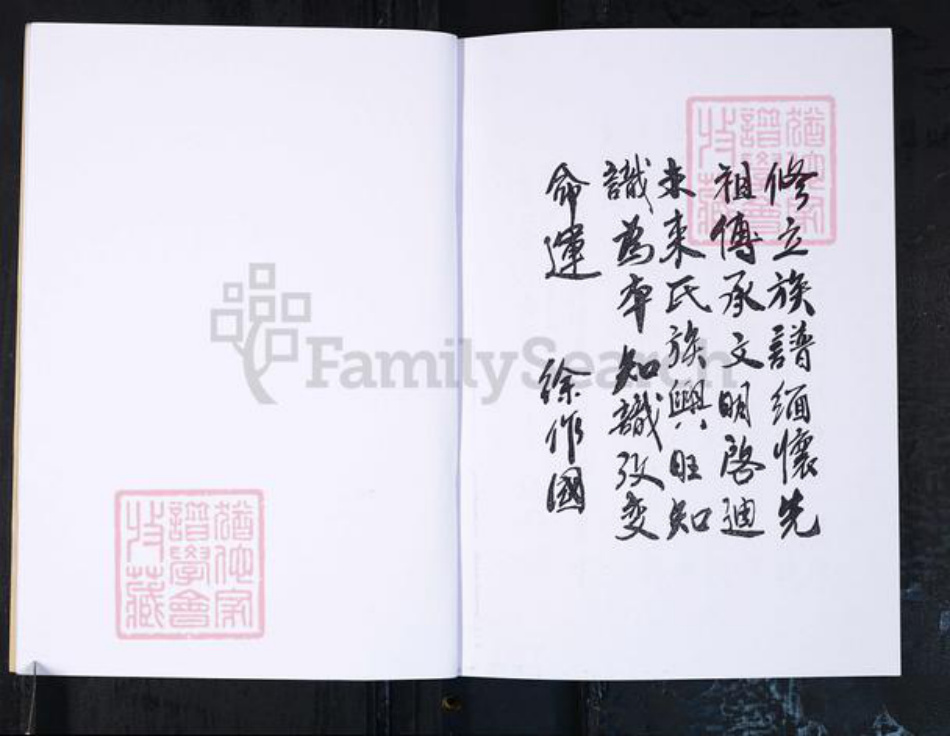 修立族譜緬懷先
祖傳承文明啓迪
未來氏族興旺知
識為本知識改变
命運 徐作國
猶他家
譜學會
收藏
猶他家
譜學會
收藏
FamilySearch